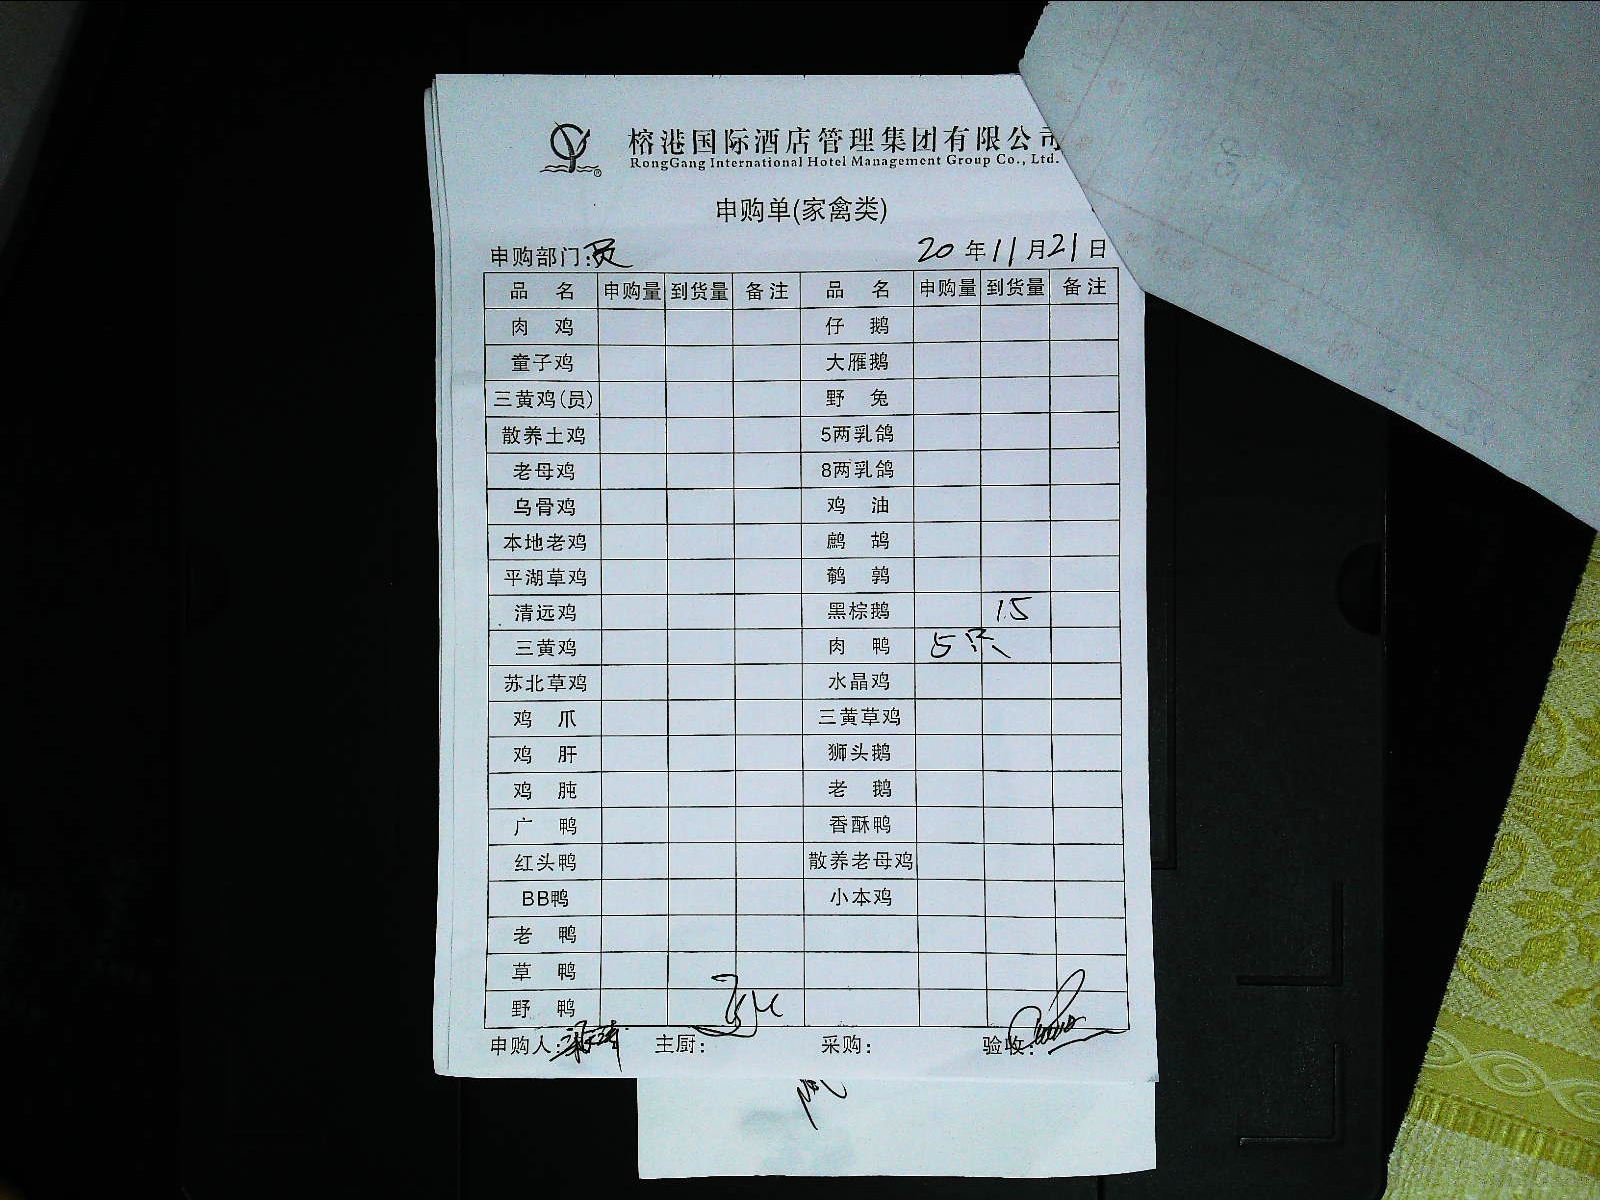 榕港国际酒店管理集团有限公司
RongGang International Hotel Management Group Co., Ltd.
申购单(家禽类)
申购部门: 20 年 11 月 21 日
品 名 申购量 到货量 备注 品 名 申购量 到货量 备注
肉 鸡 仔 鹅
童子鸡 大雁鹅
三黄鸡(员) 野 兔
散养土鸡 5两乳鸽
老母鸡 8两乳鸽
乌骨鸡 鸡 油
本地老鸡 鹧 鸪
平湖草鸡 鹌 鹑
清远鸡 黑棕鹅 15
三黄鸡 肉 鸭 5只
苏北草鸡 水晶鸡
鸡 爪 三黄草鸡
鸡 肝 狮头鹅
鸡 肫 老 鹅
广 鸭 香酥鸭
红头鸭 散养老母鸡
BB鸭 小本鸡
老 鸭
草 鸭
野 鸭
申购人: 主厨: 采购: 验收: